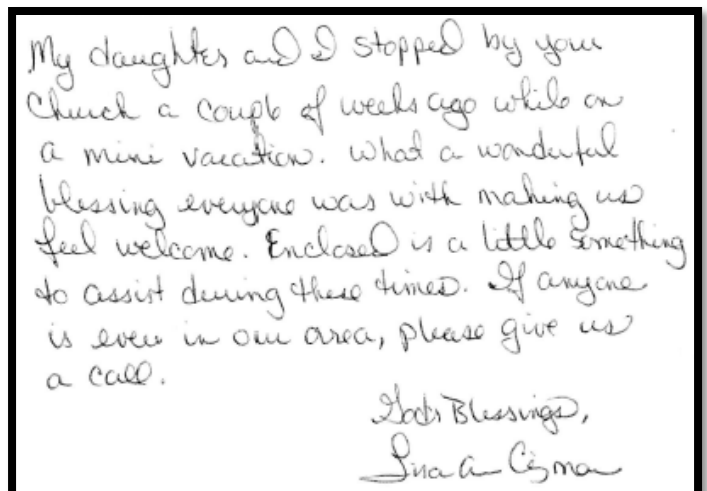 My daughter and I stopped by your
Church a couple of weeks ago while on
a mini vacation. What a wonderful
blessing everyone was with making us
feel welcome. Enclosed is a little something
to assist during these times. If anyone
is ever in our area, please give us
a call.
God's Blessings,
Lisa